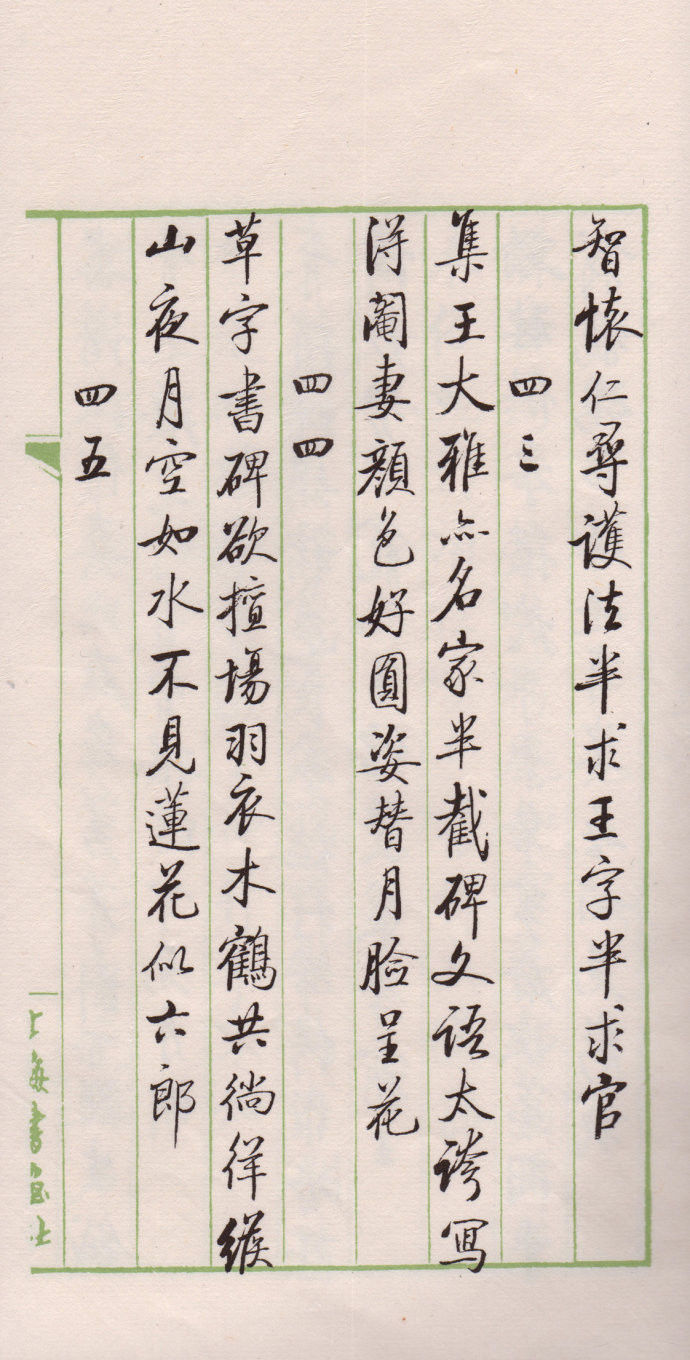 智懷仁尋護法半求王字半求官
四三
集王大雅亦名家半截碑文語太誇寫
得閹妻顏色好圓姿替月臉呈花
四四
草字書碑欲擅場羽衣木鶴共徜徉緱
山夜月空如水不見蓮花似六郎
四五
上海書畫社